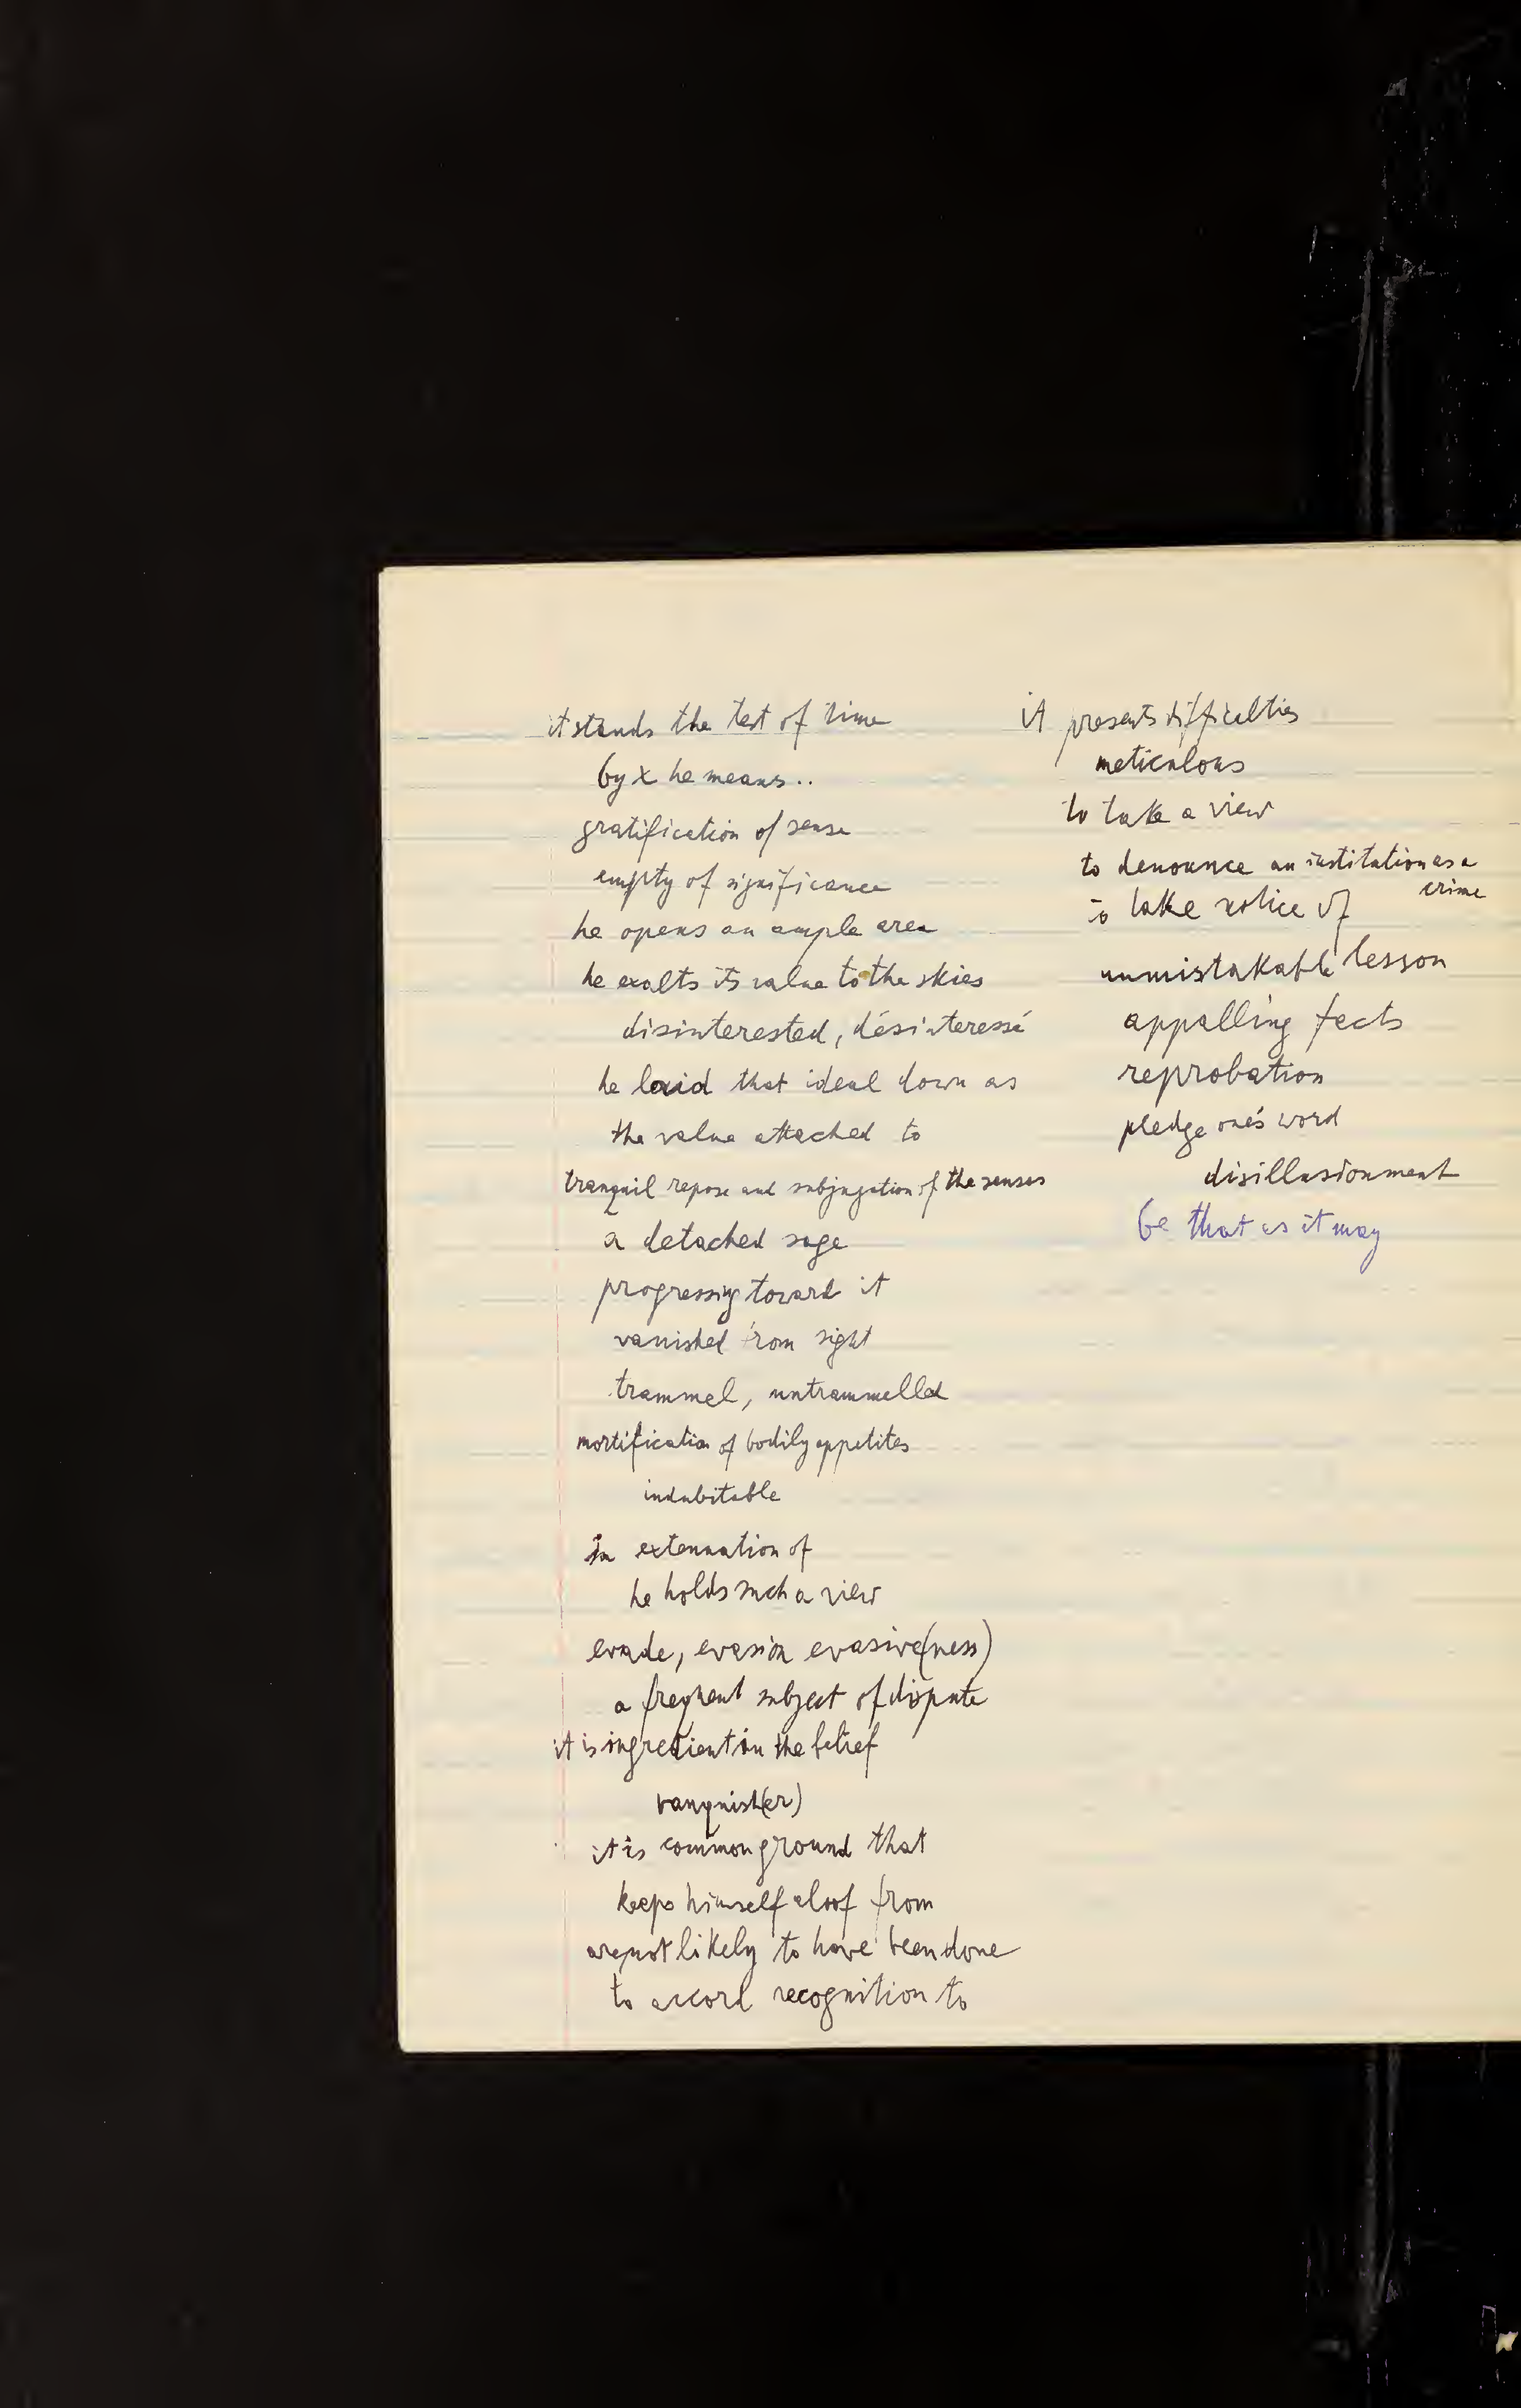 it stands the test of time
by x he means..
gratification of sense
empty of significance
he opens an ample area
he exalts its value to the skies
disinterested, désinteressé
he laid that ideal down as
the value attached to
tranquil repose and subjugation of the senses
a detached sage
progressing toward it
vanished from sight
trammel, untrammelled
mortification of bodily appetites
indubitable
in extenuation of
he holds such a view
evade, evasion evasive(ness)
a frequent subject of dispute
it is ingredient in the belief
vanquish(er)
it is common ground that
keeps himself aloof from
are not likely to have been done
to accord recognition to
it presents difficulties
meticulous
to take a view
to denounce an institution as a
crime
to take notice of
unmistakable lesson
appalling facts
reprobation
pledge one's word
disillusionment
be that as it may